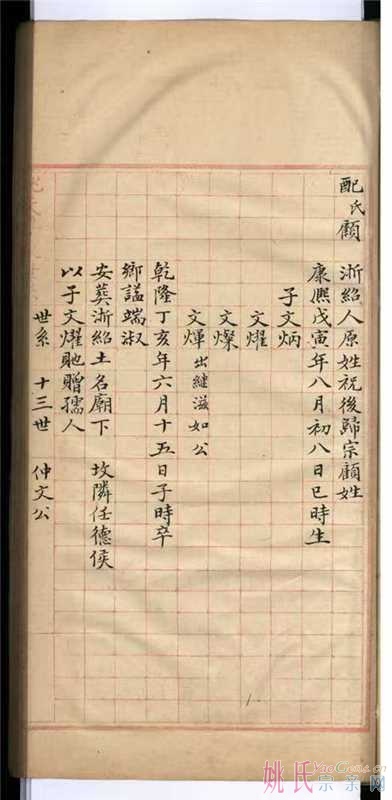 配氏顧 浙紹人原姓祝後歸宗顧姓
康熙戊寅年八月初八日巳時生
子文炳
文燿
文燦
文煇出繼滋如公
乾隆丁亥年六月十五日子時卒
鄉謚端淑
安葬浙紹土名廟下 坟隣任德侯
以子文燿貤贈孺人
世系 十三世 仲文公
姚氏宗亲网
YaoGene.cn